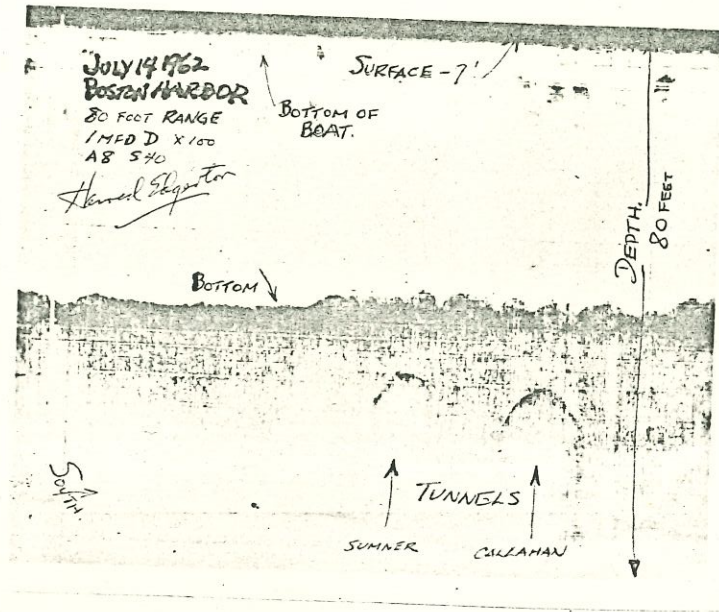 JULY 14 1962
BOSTON HARBOR
80 FOOT RANGE
1 MFD D X100
A8 S40
Harold Edgerton
SURFACE - 7'
BOTTOM OF
BOAT.
DEPTH.
80 FEET
BOTTOM
SOUTH
TUNNELS
SUMNER
CALLAHAN